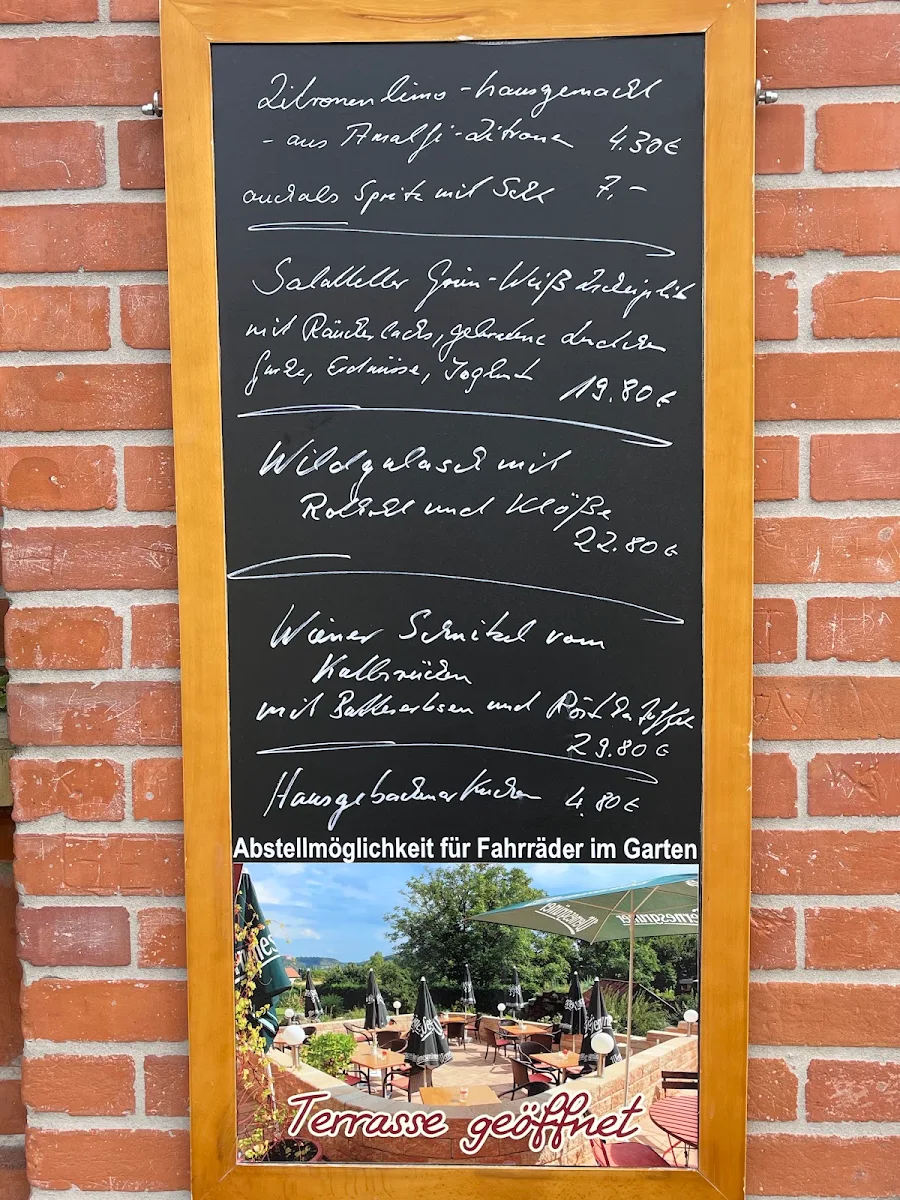 Zitronenlimo - hausgemacht
- aus Amalfi-Zitronen 4.30€
auch als Spritz mit Sekt 7,-
Salatteller Grün-Weiß
mit Räucherlachs, gebratene
Gurke, Erdnüsse, Joghurt 19.80€
Wildgulasch mit
Rotkohl und Klöße
22.80€
Wiener Schnitzel vom
Kalbsrücken
mit Buttererbsen und Röstkartoffel
29.80€
Hausgebackener Kuchen 4.80€
Abstellmöglichkeit für Fahrräder im Garten
Wernesgrüner
Terrasse geöffnet